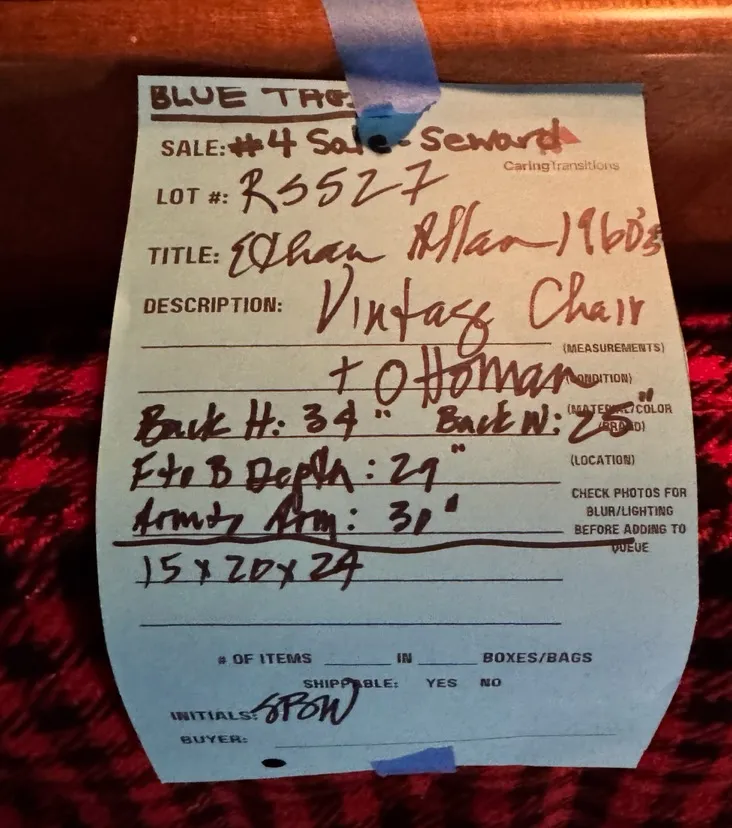 BLUE TAG
SALE: #4 Sale - Seward
CaringTransitions
LOT #: RS527
TITLE: Ethan Allan 1960's
DESCRIPTION: Vintage Chair
(MEASUREMENTS)
+ Ottoman (CONDITION)
Back H: 34" Back W: 25" (MATERIAL/COLOR
(BRAND)
F to B Depth: 29" (LOCATION)
CHECK PHOTOS FOR
Arm to Arm: 30" BLUR/LIGHTING
BEFORE ADDING TO
QUEUE
15 x 20 x 24
# OF ITEMS IN BOXES/BAGS
SHIPPABLE: YES NO
INITIALS:
BUYER: